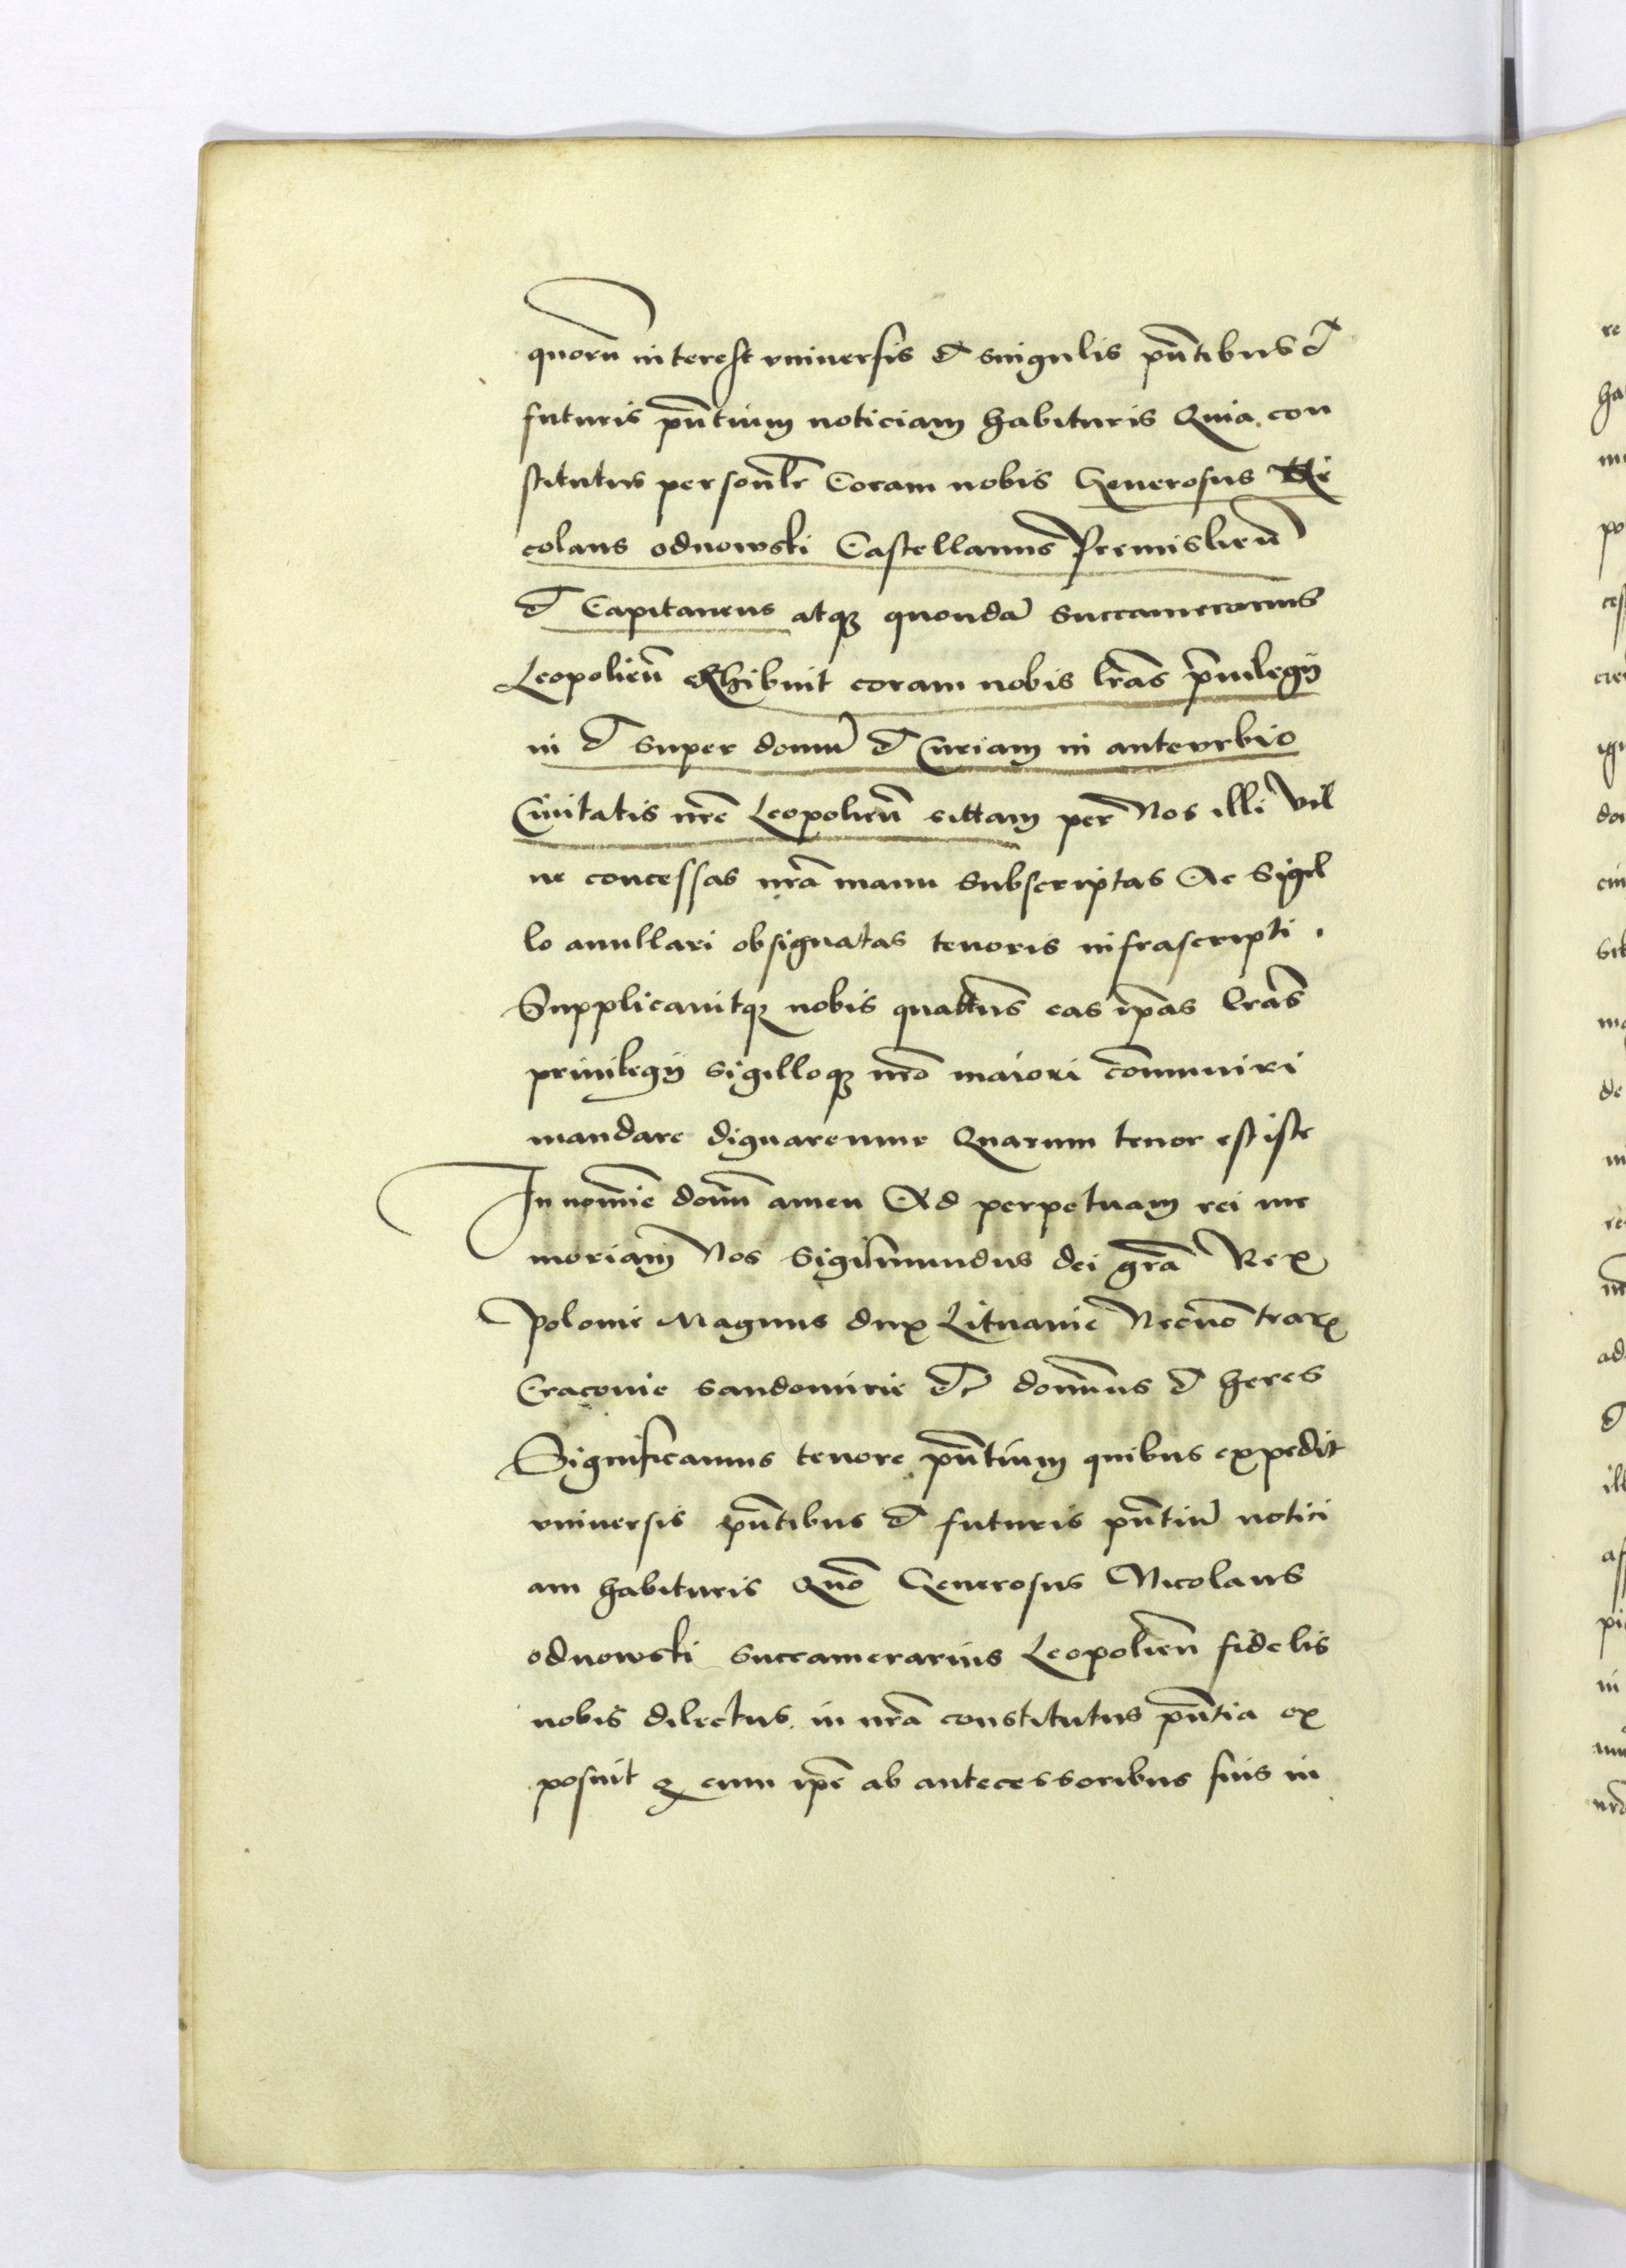 quoru̅ interest vniversis et singulis pn̅tibus et
futuris pn̅tium noticiam habituris Quia con
stitutus person̅lr Coram nobis Generosus Ni
colaus odnowski Castellanus Premislien̅
et Capitaneus atqꝫ quonda̅ Succamerarius
Leopolien̅ exhibuit coram nobis lr̅as pr̅iuilegij
in et super domu̅ et Curiam in anteurbio
Ciuitatis nr̅e Leopolien̅ sittam per Nos illi Vil
ne concessas nr̅a manu subscriptas Ac Sigil
lo anullari obsignatas tenoris infrascripti .
Supplicauitqꝫ nobis quatt̅us eas ip̅as lr̅as
priuilegij sigilloqꝫ nr̅o maiori co̅mmuniri
mandare dignaremur Quarum tenor est iste
In nomi̅e domi̅ amen Ad perpetuam rei me
moriam Nos Sigismundus dei gr̅a Rex
Polonie Magnus dux Lituanie Necno̅ trarꝝ
Cracouie sandomirie etc̅ domi̅us et heres
Significamus tenore pn̅tium quibus expedit
vniuersis pn̅tibus et futuris pn̅tiu̅ notici
am habituris Quo̅ Generosus Nicolaus
odnowski succamerarius Leopolien̅ fidelis
nobis dilectus in nr̅a constitutus pn̅tia ex
posuit ꝙ cum ip̅e ab antecessoribus suis in